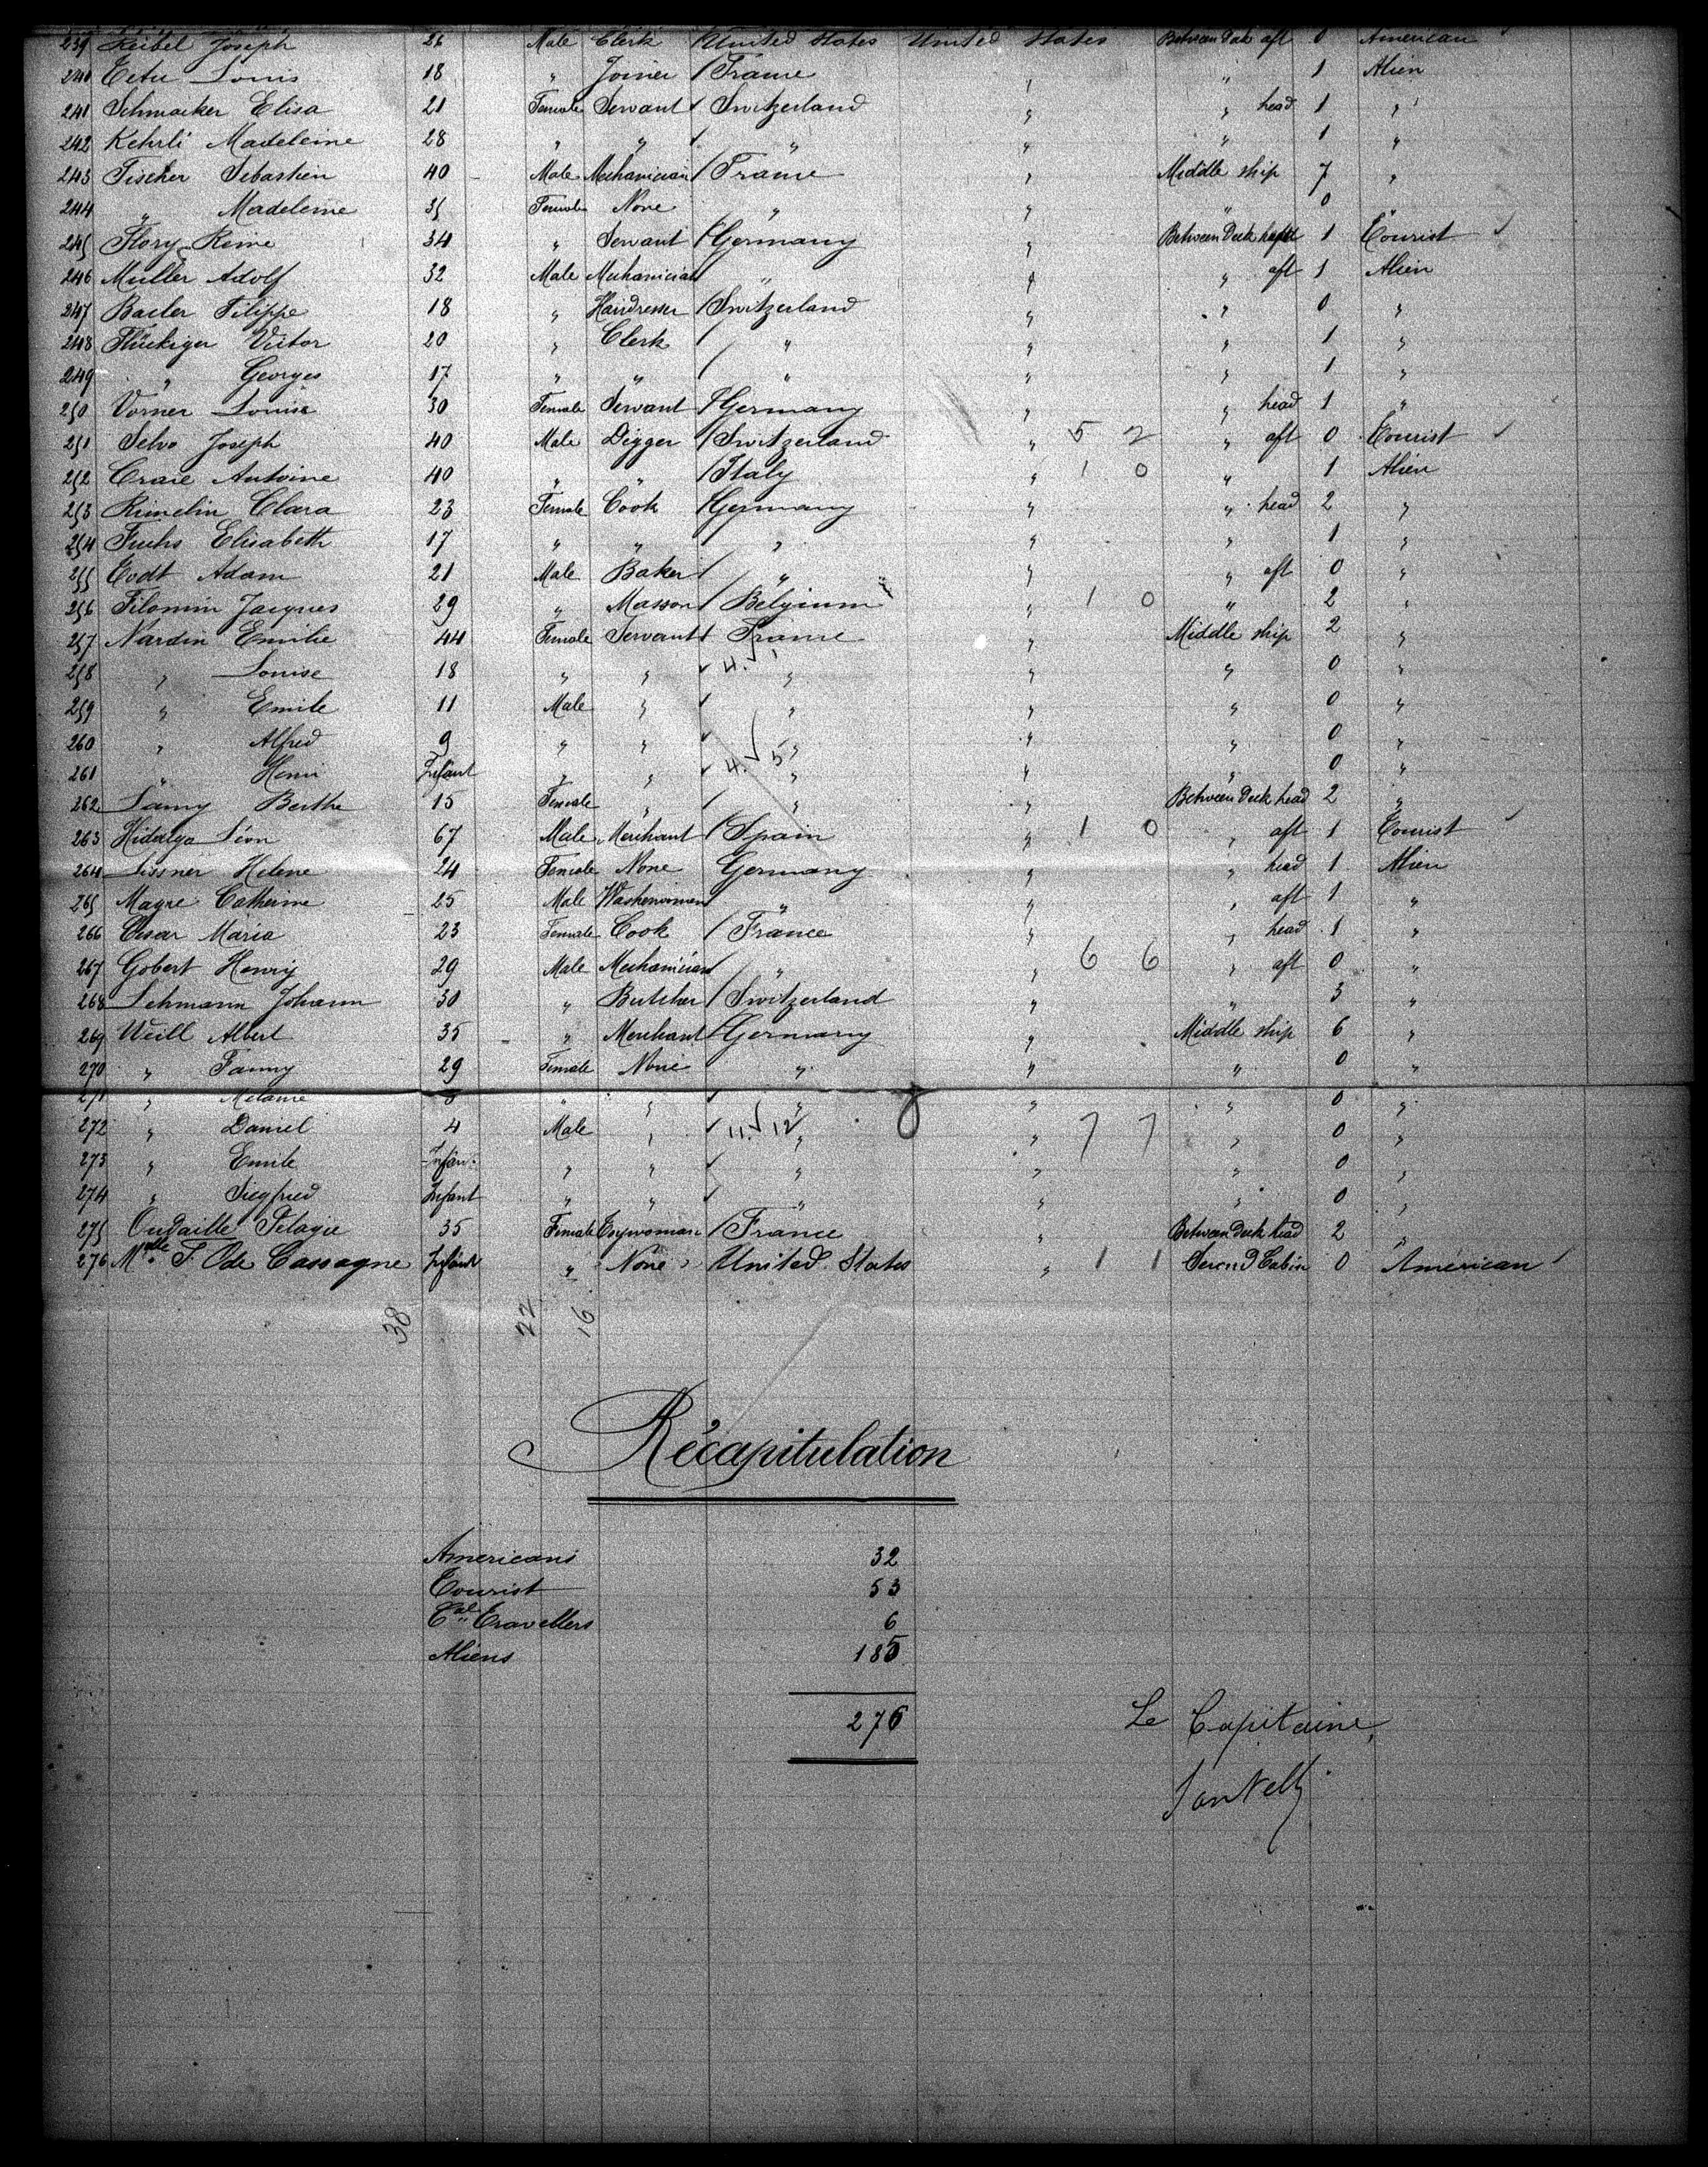 239 Reibel Joseph 26 Male Clerk United States United States Between Deck aft 0 American
240 Tetu Louis 18 " Joiner / France " " 1 Alien
241 Schmacker Elisa 21 Female Servant Switzerland " " head 1 "
242 Kehrli Madeleine 28 " " " " " 1 "
243 Fischer Sebastien 40 Male Mechanician / France " Middle ship 7 "
244 " Madeleine 35 Female None " " " 0 "
245 Flory Reine 34 " Servant / Germany " Between Deck head 1 Tourist
246 Muller Adolf 32 Male Mechanician " " " aft 1 Alien
247 Baeler Filippe 18 " Hairdresser / Switzerland " " 0 "
248 Flückiger Victor 20 " Clerk / " " " 1 "
249 " Georges 17 " " / " " " 1 "
250 Vorner Louise 30 Female Servant / Germany " " head 1 "
251 Selvo Joseph 40 Male Digger / Switzerland " 5 2 " aft 0 Tourist
252 Antoine 40 " " / Italy " 1 0 " 1 Alien
253 Rimelin Clara 23 Female Cook / Germany " " head 2 "
254 Fuchs Elisabeth 17 " " " " " 1 "
255 Eodt Adam 21 Male Baker / " " " aft 0 "
256 Filomin Jacques 29 " Masson / Belgium " 1 0 " 2 "
257 Nardin Emilie 44 Female Servant France " Middle ship 2 "
258 " Louise 18 " " 4. " " " 0 "
259 " Emile 11 Male " " " " 0 "
260 " Alfred 9 " " " " " 0 "
261 " Henri Infant " " 4. 5 " " " 0 "
262 Lamy Berthe 15 Female " / " " Between Deck head 2 "
263 Hidalgo Léon 67 Male Merchant / Spain " 1 0 " aft 1 Tourist
264 Lissner Helene 24 Female None Germany " " head 1 Alien
265 Mayre Catherine 25 Male Washerwoman " " " aft 1 "
266 Cesar Maria 23 Female Cook / France " " head 1 "
267 Gobert Henry 29 Male Mechanician " " 6 6 " aft 0 "
268 Lehmann Johann 30 " Butcher / Switzerland " " 3 "
269 Weill Albert 35 " Merchant / Germany " Middle ship 6 "
270 " Fanny 29 Female None " " " 0 "
271 " Melanie " " " " " 0 "
272 " Daniel 4 Male " 11. 12 " " 7 7 " 0 "
273 " Emile Infan. " " " " " 0 "
274 " Siegfried Infant " " " " " 0 "
275 Oudaille Pelagie 35 Female / France " Between Deck head 2 "
276 Melle T. Ode Cassagne Infant " None United States " 1 1 Second Cabin 0 American
38 22 16
Récapitulation
Americans 32
Tourist 53
Cal Travellers 6
Aliens 185
276
Le Capitaine,
Santelli